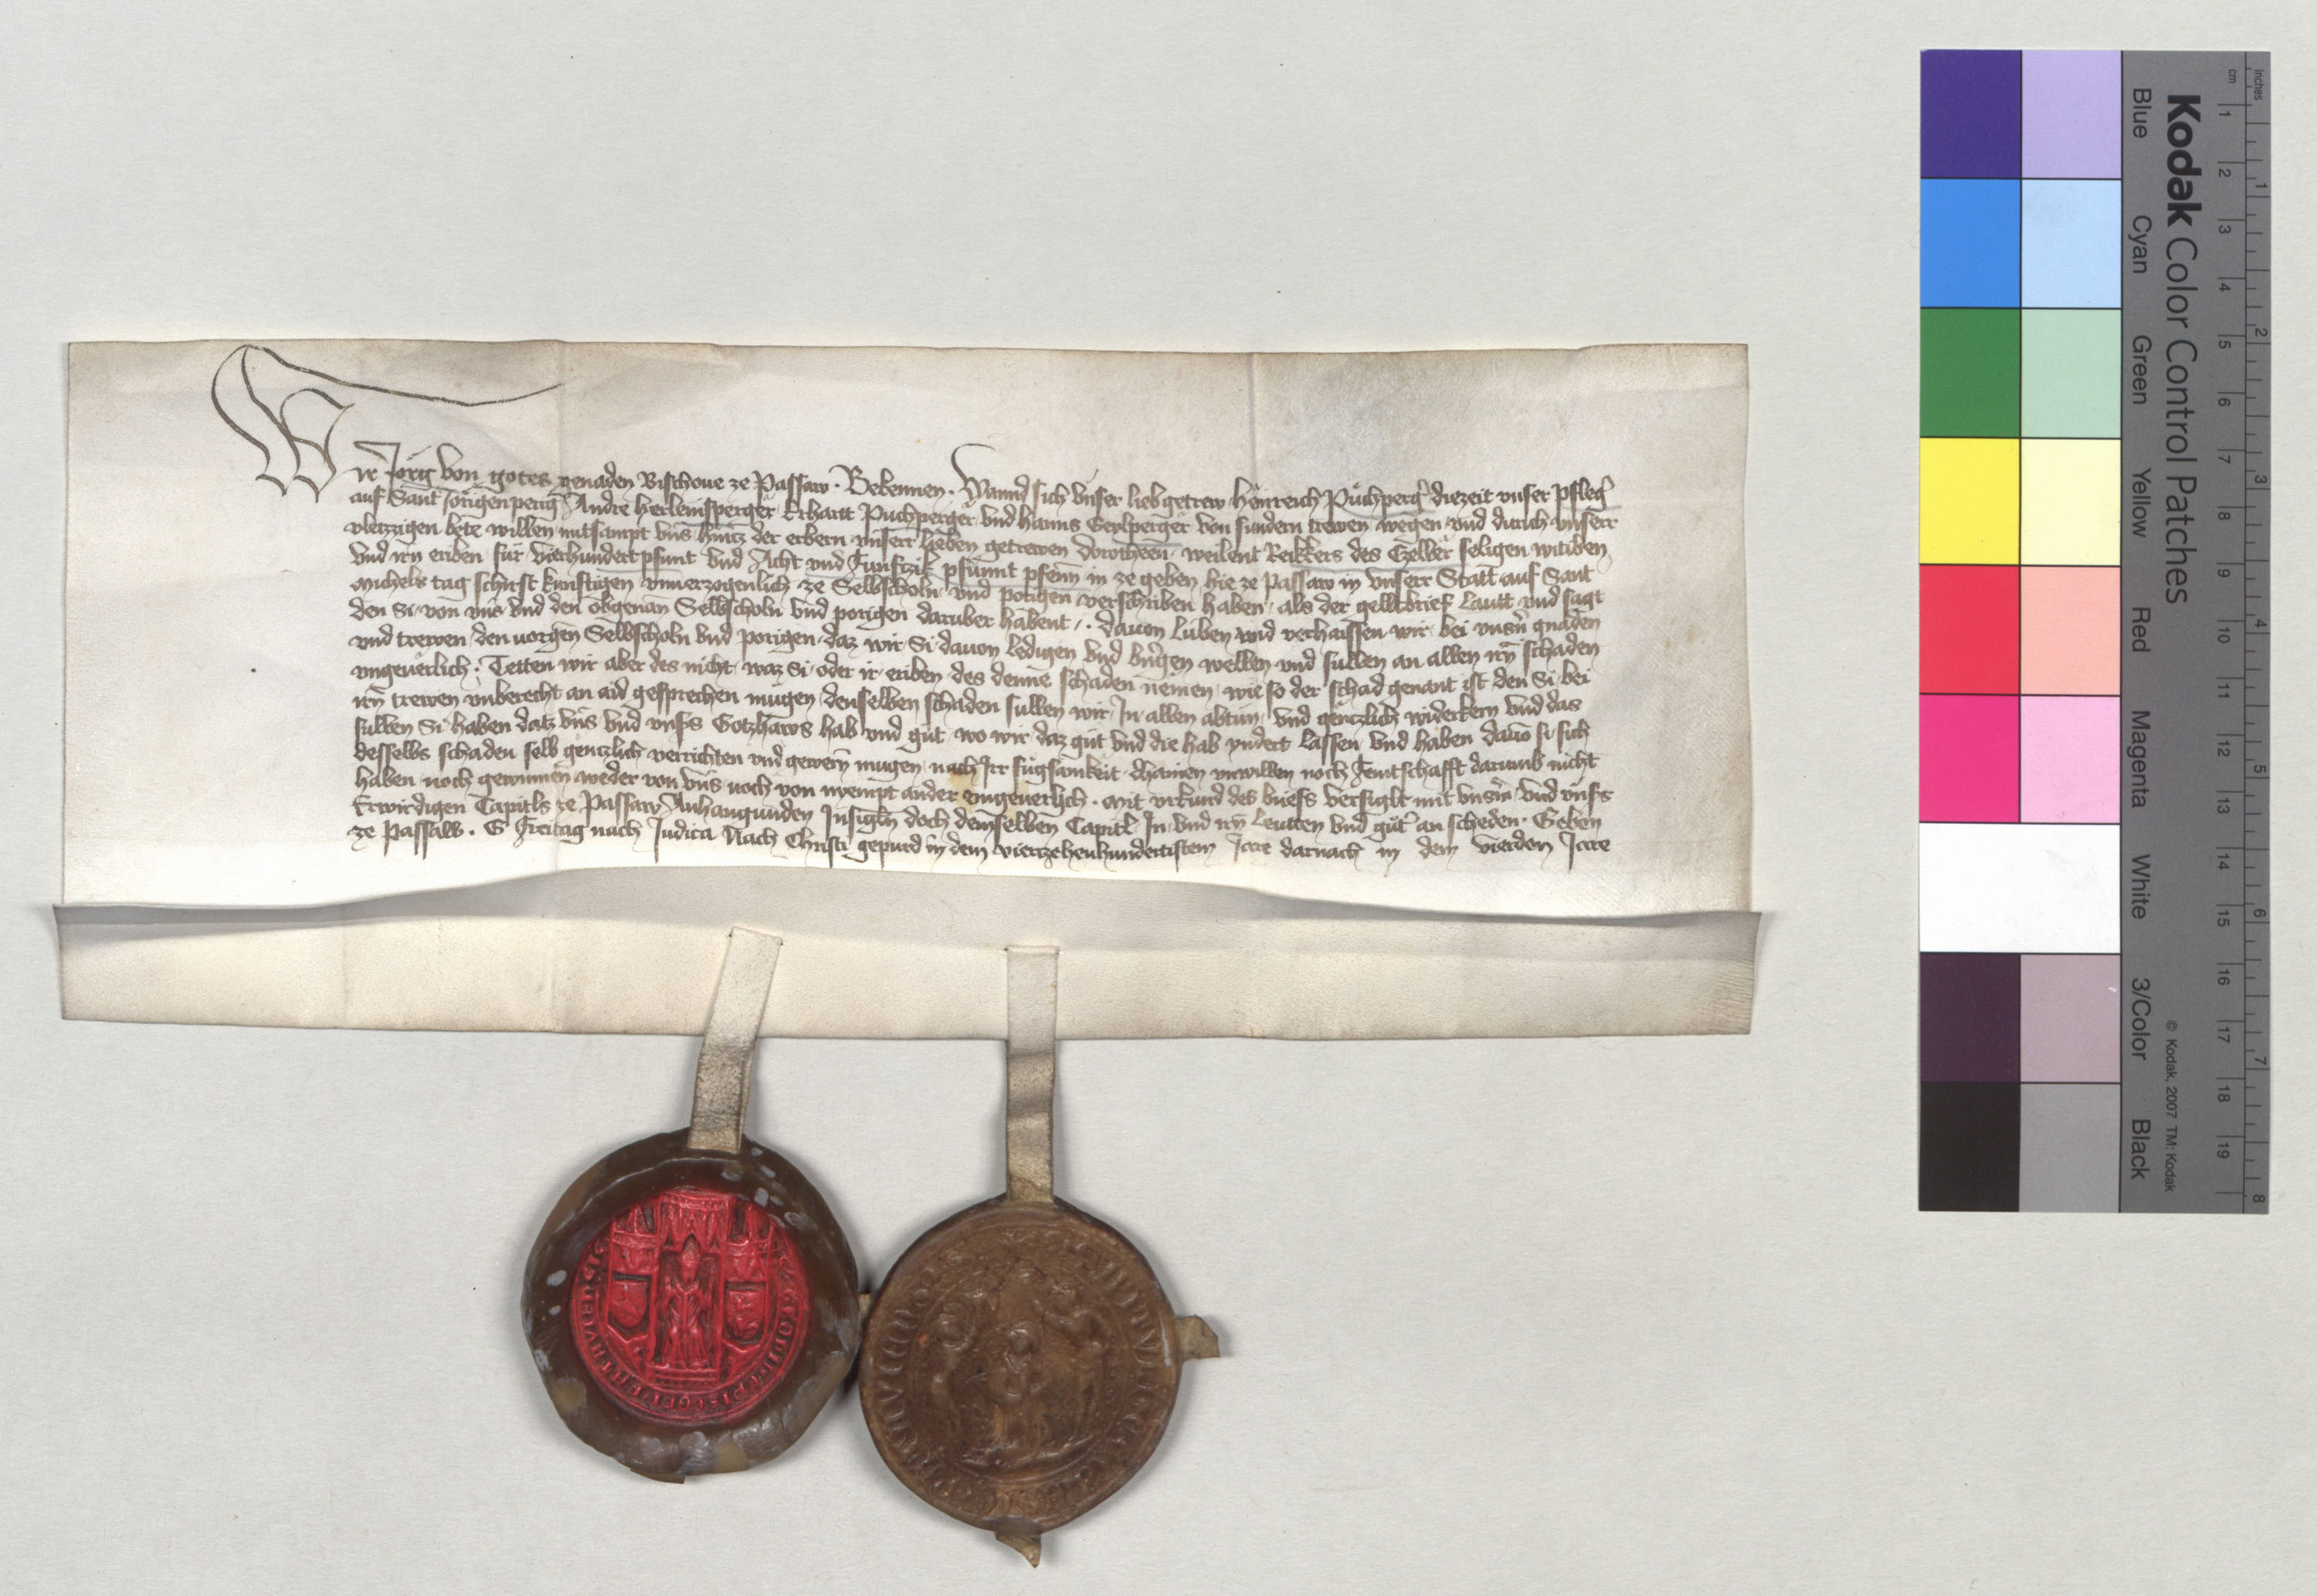 Wir Jorig von gotes genaden Bischoue ze Passaw . Bekennen . Wannd sich vnser lieb getrew Heinreich Púchperger diezeit vnser Pfleger
auf Sant Jorigenperig Andre Herleinsperger Erhart Púchperger vnd Hanns Geylsperger von sundern trewen wegen vnd durich vnserr
vletzzigen bete willen mitsampt vns hintz der erbern vnserr lieben getrewen Dorotheen weilent Reikkers des Czeller seligen witiben
vnd irn eriben für vierhundert pfunt vnd Acht vnd Funftzik pfunnt pfenn in ze geben hie ze Passaw in vnserr Statt auf Sant
Michels tag schirst kunftigen vnuerzogenlich ze Selbscholn vnd porigen verschriben haben als der geltbrief lautt vnd sagt
den Si von vns vnd den obgenan Selbscholn vnd porigen daruber habent . dauon luben vnd verhaissen wir bei vnsn gnaden
vnd trewen den uorgen Selbscholn vnd porigen daz wir Si dauon ledigen vnd bringen wellen vnd sullen an allen irn schaden
vngeuerlich . Tetten wir aber des nicht waz Si oder ir eriben des denne schaden nemen wie so der schad genant ist den Si bei
irn trewen vnberecht an aid gesprechen mugen denselben schaden sullen wir In allen abtun vnd gentzlich widerkern vnd das
sullen Si haben datz vns vnd vnsers Gotzhaws hab vnd gut wo wir daz gut vnd die hab yndert lassen vnd haben dauo si sich
desselbs schaden selb gentzlich verrichten vnd gewern mugen nach Irr fugsamkeit dhainen vnwillen noch Feintschafft darumb nicht
haben noch gewinnen weder von vns noch von nyempt ander vngeuerlich . mit vrkund des briefs versiglt mit vnserm vnd vnsers
Erwirdigen Capitls ze Passaw Anhangunden Insigln doch demselben Capitl In vnd irn Leutten vnd gut an scheden . Geben
ze Passaw . G Freitag nach Judica Nach Christi gepurd in dem vierczehenhundertistem Jare darnach in dem vierden Jare
Kodak Color Control Patches
Blue Cyan Green Yellow Red Magenta White 3/Color Black
© Kodak, 2007 TM: Kodak
cm 1 2 3 4 5 6 7 8 9 10 11 12 13 14 15 16 17 18 19
inches 1 2 3 4 5 6 7 8